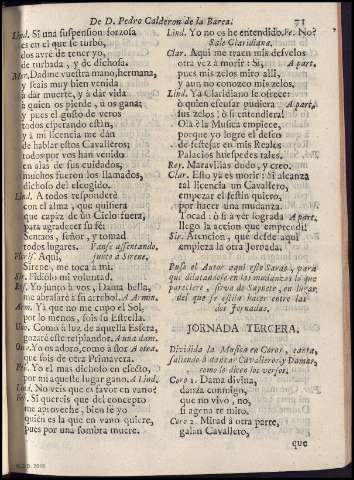 De D. Pedro Calderon de la Barca. 71
Lind. Si una suspension forzosa
es en el que se turbò,
dos avrè de tener yo,
de turbada, y de dichosa.
Mar. Dadme vuestra mano, hermana,
y seais muy bien venida
à dar muerte, y à dar vida
à quien os pierde, ù os gana;
y pues el gusto de veros
todos esperando estàn,
y à mi licencia me dàn
de hablar estos Cavalleros;
todos por vos han venido
en alas de sus cuidados,
muchos fueron los llamados,
dichoso del escogido.
Lind. A todos responderè
con el alma, que quisiera
que capàz de un Cielo fuera,
para agradecer su fè:
Sentaos, señor, y tomad
todos lugares. Vanse assentando,
Floris. Aqui, junto a Sirene.
Sirene, me toca à mì.
Sir. Fidolo mi voluntad.
yo junto à vos, Dama bella,
me abrasarè à su arrebol. A Armin.
Arm. Yà que no me cupo el Sol,
por lo menos, sois su Estrella.
Como à luz de aquella Esfera,
gozarè este resplandor. A una dam.
Yo os adoro, como à flor A otra.
que sois de otra Primavera.
Yo el mas dichoso en efecto,
por mi aquesse lugar gano. A Lind.
Lind. No veis que es favor en vano?
Si quereis que del concepto
me aproveche, bien sè yo
quièn es la que en vano quiere,
pues por una sombra muere.
Lind. Yo no os he entendido. Fe. No?
Sale Claridiana.
Clar. Aqui me traen mis desvelos
otra vez à morir: Sì, A part.
pues mis zelos miro alli,
y aun no conozco mis zelos.
Lind. Ya Claridiano se ofrece:
ò quièn escusar pudiera A part.
sus zelos! ò si entendiera!
Ola? la Musica empiece,
porque yo logre el deseo
de festejar en mis Reales
Palacios huespedes tales.
Rey. Maravillas dudo, y creo.
Clar. Esto ya es morir: Si alcanza
tal licencia un Cavallero,
empezar el festin quiero,
por hacer una mudanza.
Tocad: ò si à vèr lograda A part.
llego la accion que emprendì!
Sir. Atencion, que desde aqui
empieza la otra Jornada.
Puso el Autor aqui este Sarao, para
que dilatandose en las mudanzas lo que
pareciere, sirva de Saynete, en lugar
del que se estila hacer entre las
dos Jornadas.
JORNADA TERCERA.
Dividida la Musica en Coros, canta,
saliendo à danzar Cavalleros, y Damas,
como lo dicen los versos.
Coro 1. Dama divina,
danza conmigo,
que no vivo, no,
si agena te miro.
Coro 2. Mirad à otra parte,
galàn Cavallero,
que